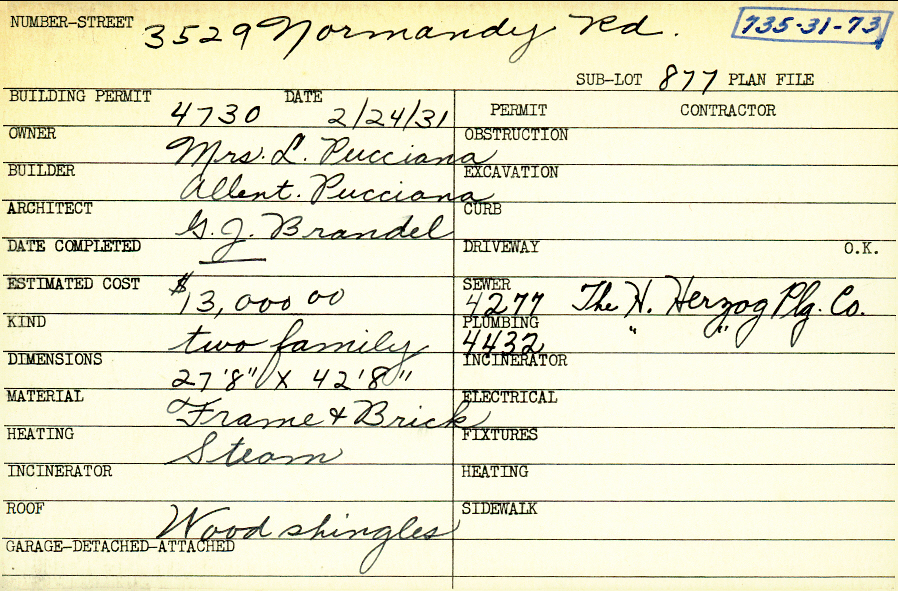 NUMBER-STREET 3529 Normandy Rd. 735-31-73
SUB-LOT 877 PLAN FILE
BUILDING PERMIT 4730 DATE 2/24/31
PERMIT CONTRACTOR
OWNER Mrs. L. Pucciana
OBSTRUCTION
BUILDER Allent. Pucciana
EXCAVATION
ARCHITECT G. J. Brandel
CURB
DATE COMPLETED —
DRIVEWAY O.K.
ESTIMATED COST $13,000 00
SEWER 4277 The H. Herzog Plg. Co.
KIND two family
PLUMBING 4432 " "
DIMENSIONS 27'8" X 42'8"
INCINERATOR
MATERIAL Frame & Brick
ELECTRICAL
HEATING Steam
FIXTURES
INCINERATOR
HEATING
ROOF Wood shingles
SIDEWALK
GARAGE-DETACHED-ATTACHED